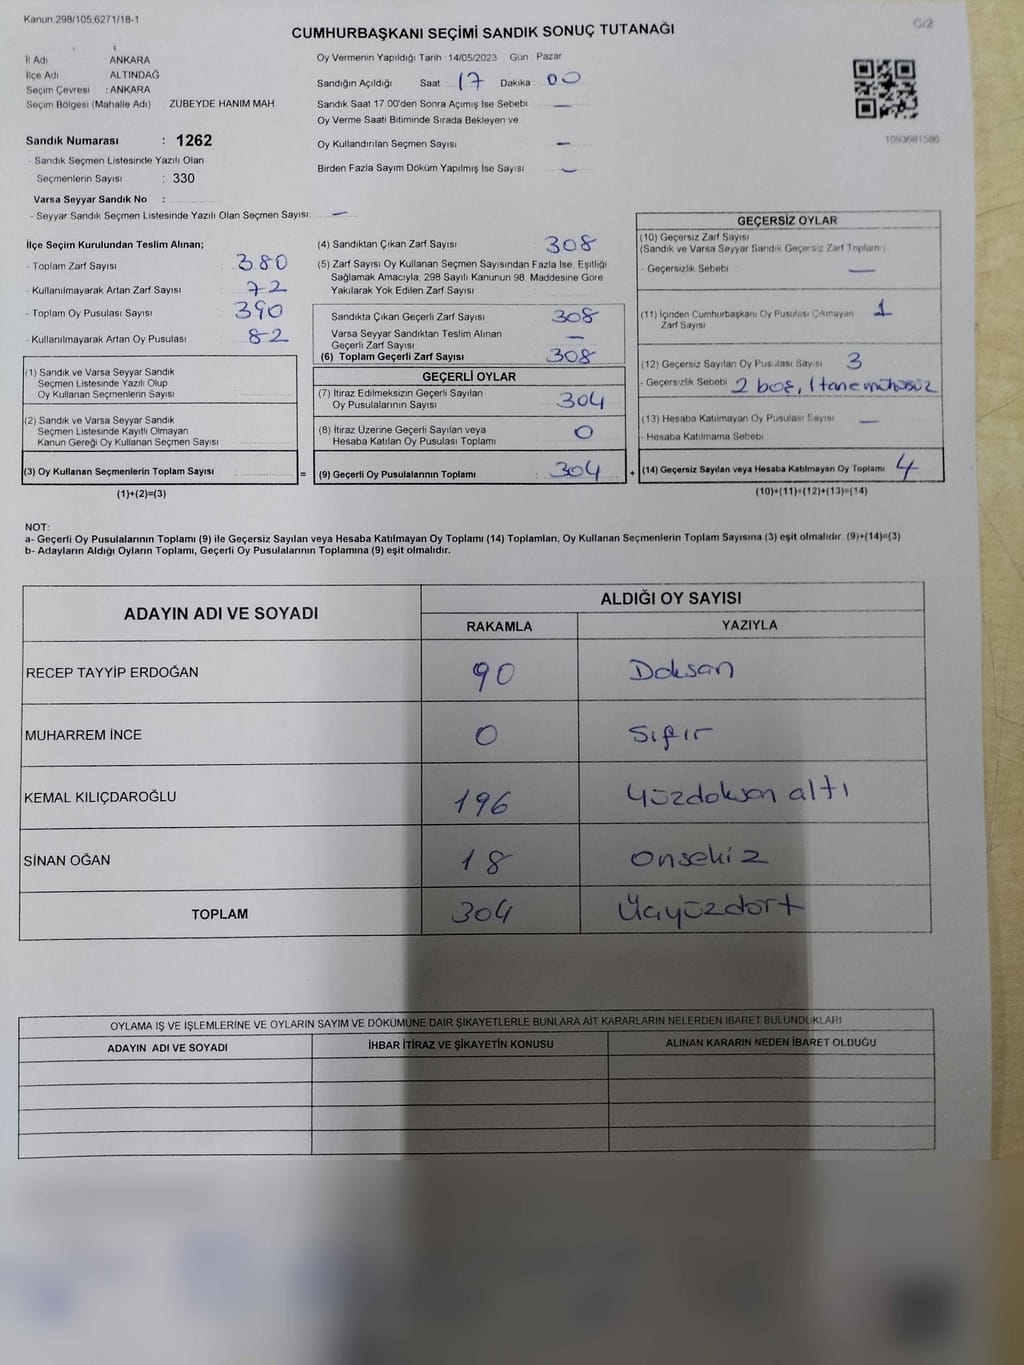 Kanun 298/105,6271/18-1
C/2
CUMHURBAŞKANI SEÇİMİ SANDIK SONUÇ TUTANAĞI
İl Adı ANKARA
İlçe Adı ALTINDAĞ
Seçim Çevresi : ANKARA
Seçim Bölgesi (Mahalle Adı) ZÜBEYDE HANIM MAH.
Sandık Numarası : 1262
- Sandık Seçmen Listesinde Yazılı Olan
Seçmenlerin Sayısı : 330
Varsa Seyyar Sandık No :
- Seyyar Sandık Seçmen Listesinde Yazılı Olan Seçmen Sayısı: —
Oy Vermenin Yapıldığı Tarih : 14/05/2023 Gün Pazar
Sandığın Açıldığı Saat : 17 Dakika : 00
Sandık Saat 17.00'den Sonra Açımış İse Sebebi : —
Oy Verme Saati Bitiminde Sırada Bekleyen ve
Oy Kullandırılan Seçmen Sayısı : —
Birden Fazla Sayım Döküm Yapılmış İse Sayısı : —
1093681586
İlçe Seçim Kurulundan Teslim Alınan;
- Toplam Zarf Sayısı : 380
- Kullanılmayarak Artan Zarf Sayısı : 72
- Toplam Oy Pusulası Sayısı : 390
- Kullanılmayarak Artan Oy Pusulası : 82
(1) Sandık ve Varsa Seyyar Sandık
Seçmen Listesinde Yazılı Olup
Oy Kullanan Seçmenlerin Sayısı :
(2) Sandık ve Varsa Seyyar Sandık
Seçmen Listesinde Kayıtlı Olmayan
Kanun Gereği Oy Kullanan Seçmen Sayısı :
(3) Oy Kullanan Seçmenlerin Toplam Sayısı : =
(1)+(2)=(3)
(4) Sandıktan Çıkan Zarf Sayısı : 308
(5) Zarf Sayısı Oy Kullanan Seçmen Sayısından Fazla İse, Eşitliği
Sağlamak Amacıyla, 298 Sayılı Kanunun 98. Maddesine Göre
Yakılarak Yok Edilen Zarf Sayısı :
Sandıkta Çıkan Geçerli Zarf Sayısı : 308
Varsa Seyyar Sandıktan Teslim Alınan
Geçerli Zarf Sayısı : —
(6) Toplam Geçerli Zarf Sayısı : 308
GEÇERLİ OYLAR
(7) İtiraz Edilmeksizin Geçerli Sayılan
Oy Pusulalarının Sayısı : 304
(8) İtiraz Üzerine Geçerli Sayılan veya
Hesaba Katılan Oy Pusulası Toplamı : 0
(9) Geçerli Oy Pusulalarının Toplamı : 304 +
GEÇERSİZ OYLAR
(10) Geçersiz Zarf Sayısı
(Sandık ve Varsa Seyyar Sandık Geçersiz Zarf Toplamı)
- Geçersizlik Sebebi : —
(11) İçinden Cumhurbaşkanı Oy Pusulası Çıkmayan 1
Zarf Sayısı
(12) Geçersiz Sayılan Oy Pusulası Sayısı 3
- Geçersizlik Sebebi 2 boş, 1 tane mühürsüz
(13) Hesaba Katılmayan Oy Pusulası Sayısı —
- Hesaba Katılmama Sebebi
(14) Geçersiz Sayılan veya Hesaba Katılmayan Oy Toplamı 4
(10)+(11)+(12)+(13)=(14)
NOT:
a- Geçerli Oy Pusulalarının Toplamı (9) ile Geçersiz Sayılan veya Hesaba Katılmayan Oy Toplamı (14) Toplamları, Oy Kullanan Seçmenlerin Toplam Sayısına (3) eşit olmalıdır. (9)+(14)=(3)
b- Adayların Aldığı Oyların Toplamı, Geçerli Oy Pusulalarının Toplamına (9) eşit olmalıdır.
ADAYIN ADI VE SOYADI ALDIĞI OY SAYISI
RAKAMLA YAZIYLA
RECEP TAYYİP ERDOĞAN 90 Doksan
MUHARREM İNCE 0 Sıfır
KEMAL KILIÇDAROĞLU 196 Yüzdoksan altı
SİNAN OĞAN 18 Onsekiz
TOPLAM 304 Üçyüzdört
OYLAMA İŞ VE İŞLEMLERİNE VE OYLARIN SAYIM VE DÖKÜMÜNE DAİR ŞİKAYETLERLE BUNLARA AİT KARARLARIN NELERDEN İBARET BULUNDUKLARI
ADAYIN ADI VE SOYADI İHBAR İTİRAZ VE ŞİKAYETİN KONUSU ALINAN KARARIN NEDEN İBARET OLDUĞU